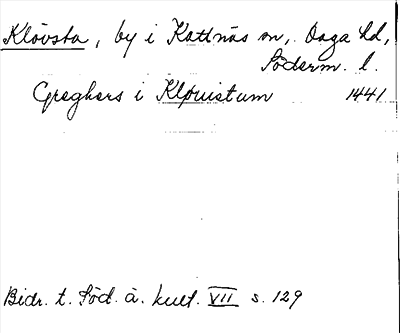 Klövsta, by i Kattnäs sn, Daga hd,
Söderm. l.
Greghers i Kløuistum 1441
Bidr. t. Söd. ä. kult. VII s. 129